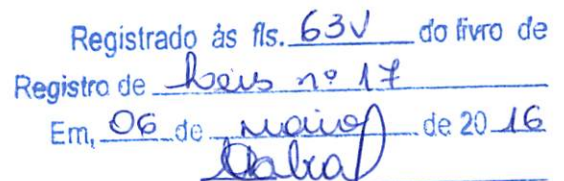 Registrado às fls. 63V do livro de
Registro de Leis nº 17
Em, 06 de maio de 2016